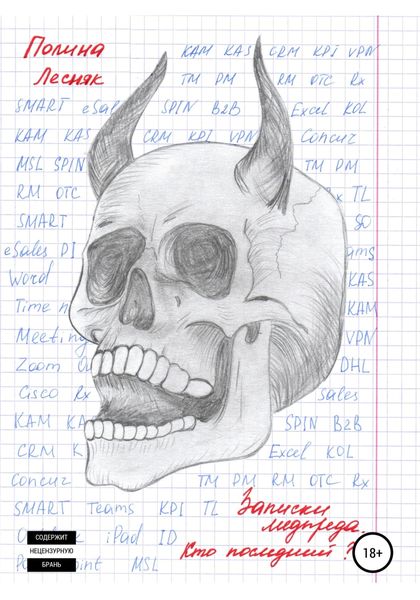 Полина
Лесняк
KAM KAS CRM KPI VPN
TM PM RM OTC Rx
SMART eSal SPIN B2B Excel KOL
KAM KAS CRM KPI VPN Concur
MSL SPIN TM PM
RM OTC x TL
SMART SO
eSales PI ams
Word KAS
Time m KAM
Meeting VPN
Zoom DHL
Cisco Rx Sales
KAM KA SPIN B2B
CRM K Excel KOL
Concur TM PM RM OTC Rx
SMART Teams KPI TL
iPad ID
MSL
Записки
медпреда.
Кто последний?
СОДЕРЖИТ
НЕЦЕНЗУРНУЮ
БРАНЬ
18+